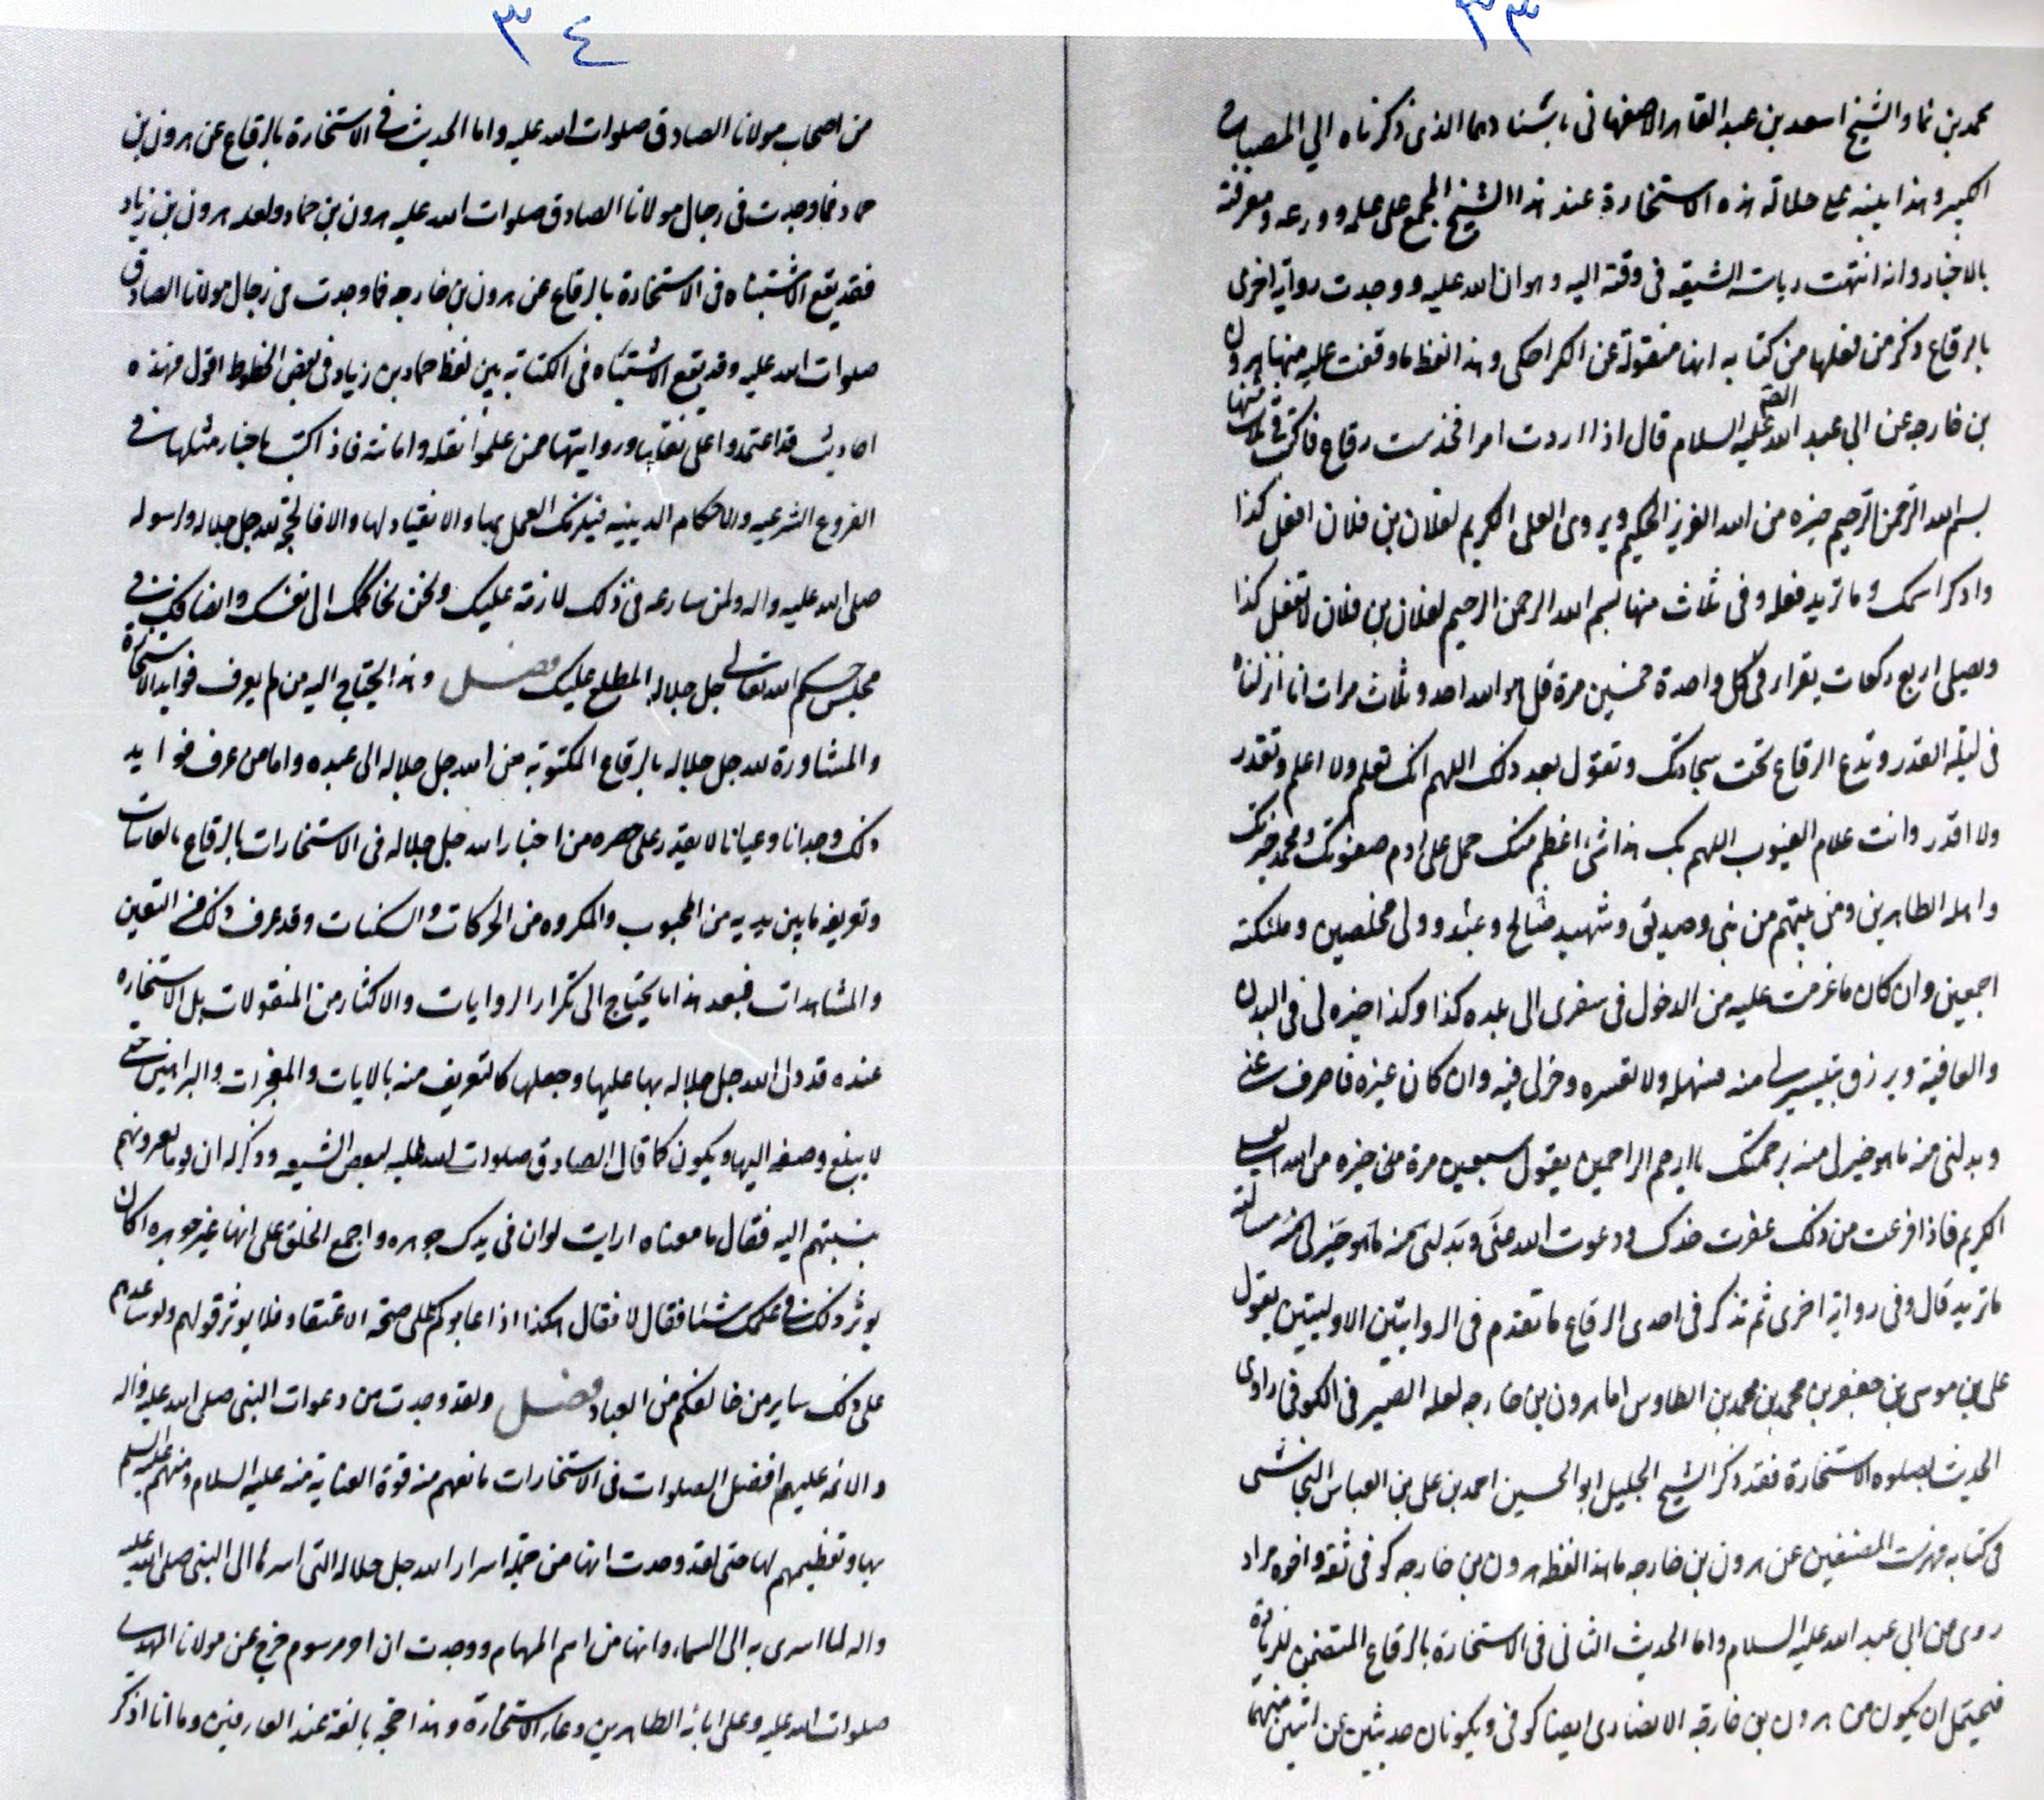 ٣٣
محمد بن نما والشيخ اسعد بن عبد القاهر الاصفهانى باسنادهما الذى ذكرناه الي المصباح
الكبير وهذا ينبه على جلالة هذه الاستخارة عند هذا الشيخ المجمع على علمه وورعه ومعرفته
بالاخبار وانه انتهت رياسة الشيعة فى وقته اليه رضوان الله عليه ووجدت رواية اخرى
بالرقاع وذكر من نقلها من كتابه انها منقولة عن الكراجكى وهذا لفظ ما وقفت عليه منها هرون
بن خارجه عن ابي عبد الله الصـ عليه السلام قال اذا اردت امرا فخذ ست رقاع فاكتب فى ثلاث منها
بسم الله الرحمن الرحيم خيره من الله العزيز الحكيم ويروى العلى الكريم لفلان بن فلان افعل كذا
واذكر اسمك وما تريد فعله وفى ثلاث منها بسم الله الرحمن الرحيم لفلان بن فلان لا تفعل كذا
وتصلى اربع ركعات يقراء فى كل واحدة خمسين مرة قل هو الله احد وثلاث مرات انا انزلناه
فى ليلة القدر وتدع الرقاع تحت سجادتك وتقول بعد ذلك اللهم انك تعلم ولا اعلم وتقدر
ولا اقدر وانت علام الغيوب اللهم بك فلا شئ اعظم منك صل على ادم صفوتك ومحمد خيرتك
واهله الطاهرين ومن بينهم من نبى وصديق وشهيد وصالح وعبد وولى مخلصين وملئكته
اجمعين وان كان ما عزمت عليه من الدخول فى سفرى الى بلده كذا وكذا خيره لى فى البدن
والعافية ويرزق تيسير لى منه فسهله ولا تعسره وخر لى فيه وان كان غيره فاصرف عنى
وبدلنى منه ما هو خير لى منه برحمتك يا ارحم الراحمين يقول سبعين مرة من خيره من الله العلى
الكريم فاذا فرغت من ذلك عفرت خدك ودعوت الله حتى وبدلنى منه ما هو خير لى منه مسالته
ما تريد قال وفى رواية اخرى ثم تذكر فى احدى الرقاع ما تقدم فى الروايتين الاوليتين يقول
على بن موسى بن جعفر بن محمد بن محمد بن الطاوس اما هرون بن خارجه لعله الصيرفى الكوفى راوى
الحديث بصلوه الاستخارة فقد ذكر الشيخ الجليل ابو الحسين احمد بن على بن العباس النجاشى
فى كتابه فهرست المصنفين عن هرون بن خارجه ما هذا لفظه هرون بن خارجه كوفى ثقة واخوه مراد
روى عن ابي عبد الله عليه السلام واما الحديث الثانى فى الاستخارة بالرقاع المتضمن للزيادة
فيحتمل ان يكون من هرون بن خارجه الانصارى ايضا كوفى ويكونان حديثين عن اثنين منهما
٣٤
من اصحاب مولانا الصادق صلوات الله عليه واما الحديث فى الاستخارة بالرقاع عن هرون بن
حماد فما وجدت فى رجال مولانا الصادق صلوات الله عليه هرون بن حماد ولعله هرون بن زياد
فقد يقع الاشتباه فى الاستخارة بالرقاع عن هرون بن خارجه فما وجدت فى رجال مولانا الصادق
صلوات الله عليه وقد يقع الاشتباه فى الكتابة بين لفظ حماد بن زياد فى بعض الخطوط اقول فهذه
احاديث قد اعتمدوا على نقلها وروايتها ممن علموا نقله وامانته فاذا كتب باخبار مثلها فى
الفروع الشرعيه والاحكام الدينيه فيلزمك العمل بها والانقياد لها والا فالحجة لله جل جلاله ولرسوله
صلى الله عليه واله ولمن سارعه فى ذلك لازمة عليك ونحن نحاكمك الى نفسك وانصافك فى
مجلس حكم الله تعالى جل جلاله المطلع عليك فصل وهذا يحتاج اليه من لم يعرف فوايد الاستخارة
والمشاورة لله جل جلاله بالرقاع المكتوبة من الله جل جلاله الى عبده واما من عرف فوايد
ذلك وجدانا وعيانا لا يقدر على حصره من اخبار الله جل جلاله فى الاستخارات بالرقاع بالغايبات
وتعريفه ما بين يديه من المحبوب والمكروه من الحركات والسكنات وقد عرف ذلك من اليقين
والمشاهدات فبعد هذا ما يحتاج الى تكرار الروايات والاكثار من المنقولات بل الاستخاره
عنده قد دل الله جل جلاله بها عليها وجعلها كالتعريف منه بالايات والمعجزات والبراهين حتى
لا يبلغ وصفه اليها ويكون كما قال الصادق صلوات الله عليه لبعض الشيعه وذكر له ان قوما يعيرونهم
بنسبتهم اليه فقال ما معناه ارايت لو ان فى يدك جوهره واجمع الخلق على انها غير جوهره اكان
يوثر ذلك فى علمك شيئا فقال لا فقال هكذا اذا عابوكم على صحة الاعتقاد فلا يوثر قولهم ولو ساعدهم
على ذلك ساير من خالفكم من العباد فصل ولقد وجدت من دعوات النبى صلى الله عليه واله
والائمه عليهم افضل الصلوات فى الاستخارات ما نفهم منه قوة العناية منه عليه السلام ومنهم عليهم السلم
بها وتعظيمهم لها حتى لقد وجدت انها من جملة اسرار الله جل جلاله التى اسرها الى النبى صلى الله عليه
واله لما اسرى به الى السماء وانها من اهم المهام ووجدت ان اخر مرسوم خرج عن مولانا المهدى
صلوات الله عليه وعلى ابائه الطاهرين دعاء الاستخارة وهذا حجة بالغة عند العارفين وما انا اذكر